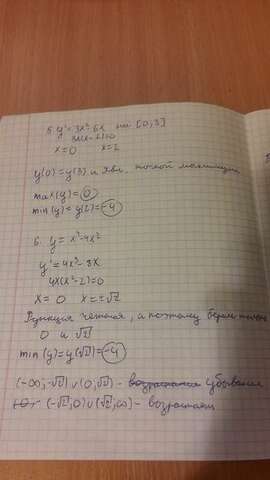 5. y' = 3x² - 6x на [0,3]
3x(x-2)=0
x=0 x=2
y(0)=y(3) и явл. точкой максимума
max(y)=0
min(y)=y(2)=-4
6. y = x⁴-4x²
y'=4x³-8x
4x(x²-2)=0
x=0 x=±√2
Функция чётная, а поэтому берём точки
0 и √2
min(y)=y(√2)=-4
(-∞;-√2)∪(0,√2) - убывания
(-√2;0)∪(√2;∞) - возрастает